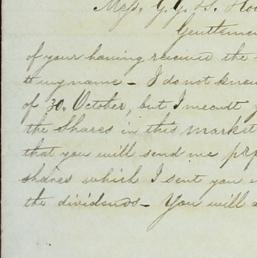 Mess. G. G. & S. How
Gentlemen
of your having received the
to my name - I do not know
of 30. October, but I meant
the Shares in this market
that you will send me pr
shares which I sent you
the dividends - You will